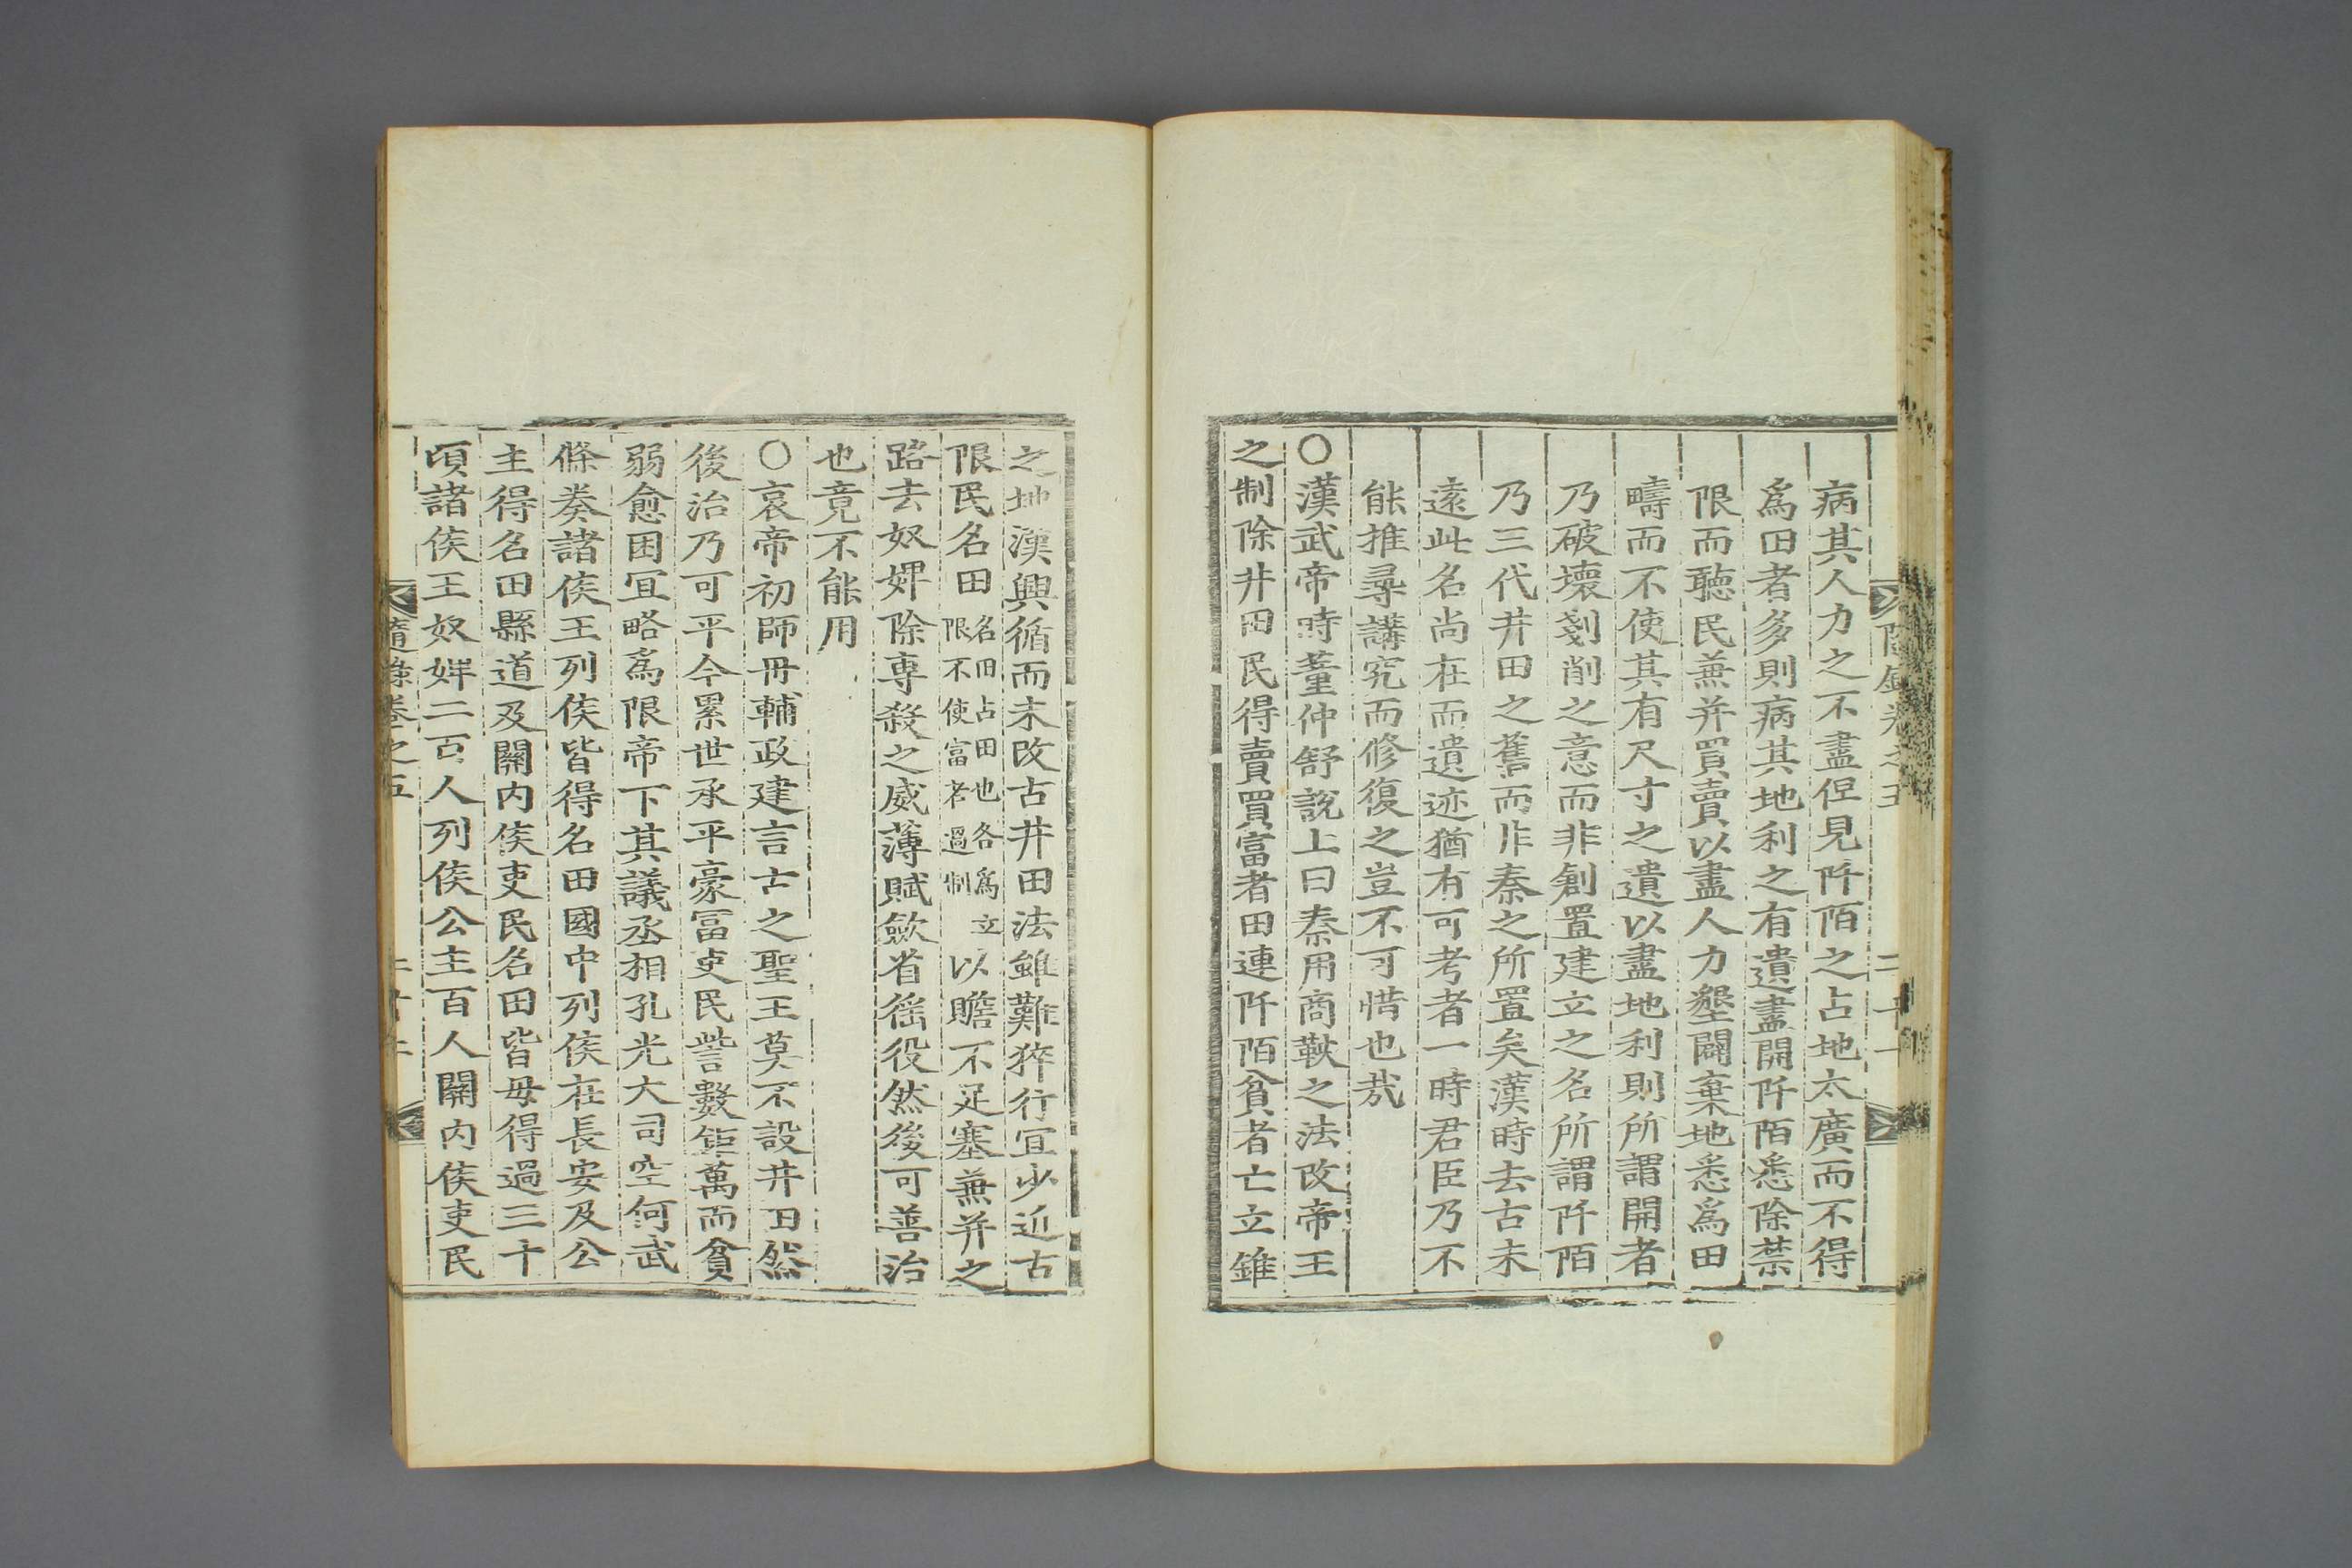 隨錄卷之五
二十一
病其人力之不盡但見阡陌之占地太廣而不得
爲田者多則病其地利之有遺盡開阡陌悉除禁
限而聽民兼并買賣以盡人力墾闢棄地悉爲田
疇而不使其有尺寸之遺以盡地利則所謂開者
乃破壞剗削之意而非創置建立之名所謂阡陌
乃三代井田之舊而非秦之所置矣漢時去古未
遠此名尚在而遺迹猶有可考者一時君臣乃不
能推尋講究而修復之豈不可惜也㦲
○漢武帝時董仲舒說上曰秦用商鞅之法改帝王
之制除井田民得賣買富者田連阡陌貧者亡立錐
之地漢興循而未改古井田法雖難猝行宜少近古
限民名田名田占田也各爲立限不使富者過制以贍不足塞兼并之
路去奴婢除專殺之威薄賦歛省徭役然後可善治
也竟不能用
○哀帝初師丹輔政建言古之聖王莫不設井田然
後治乃可平今累世承平豪冨吏民訾數鉅萬而貧
弱愈困宜略爲限帝下其議丞相孔光大司空何武
條奏諸侯王列侯皆得名田國中列侯在長安及公
主得名田縣道及關內侯吏民名田皆毋得過三十
頃諸侯王奴婢二百人列侯公主百人關內侯吏民
隨錄卷之五
二十二